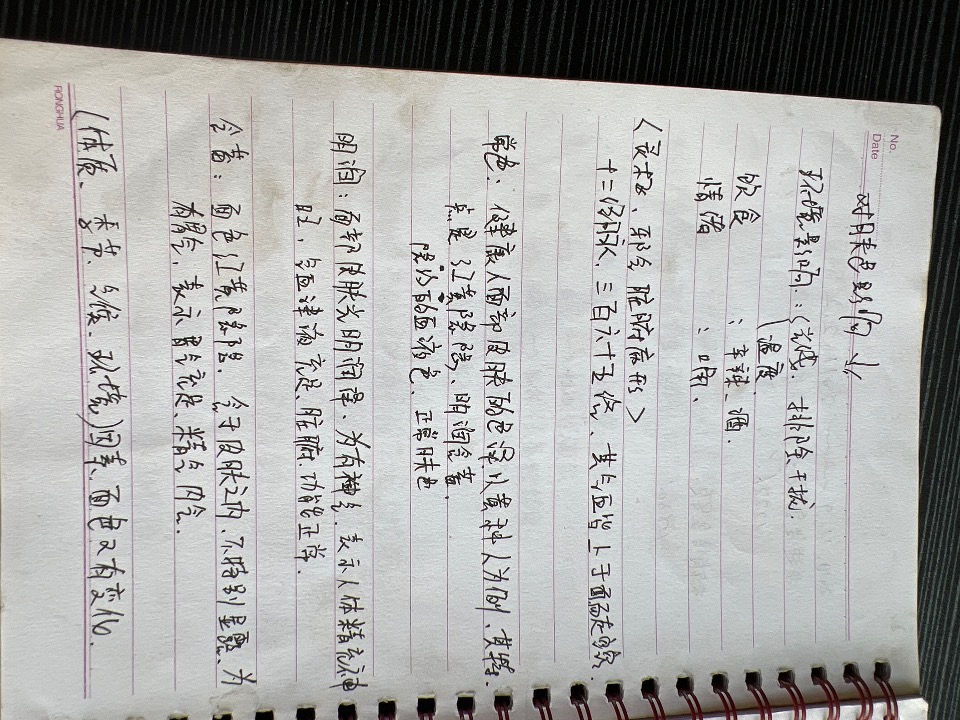 No.
Date
对肤色影响↓
环境影响:(光线. 排除干扰.
温度
饮食 : 辛辣. 酒.
情绪 : 喝.
<灵枢、邪气脏腑病形>
十二经脉、三百六十五络、其血气皆上于面而走空窍
常色: 健康人面部皮肤的色泽以黄种人为例, 其特
点是:红黄隐隐、明润含蓄.
隐约的血液色、正常肤色
明润:面部皮肤光明润泽、为有神气、表示人体精充神
旺、气血津液充足、脏腑功能正常.
含蓄: 面色红黄隐隐. 含于皮肤之内、不特别显露、为
有胃气、表示胃气充足、精气内含.
(体质、季节、气候、环境)因素、面色又有变化.
RONGHUA